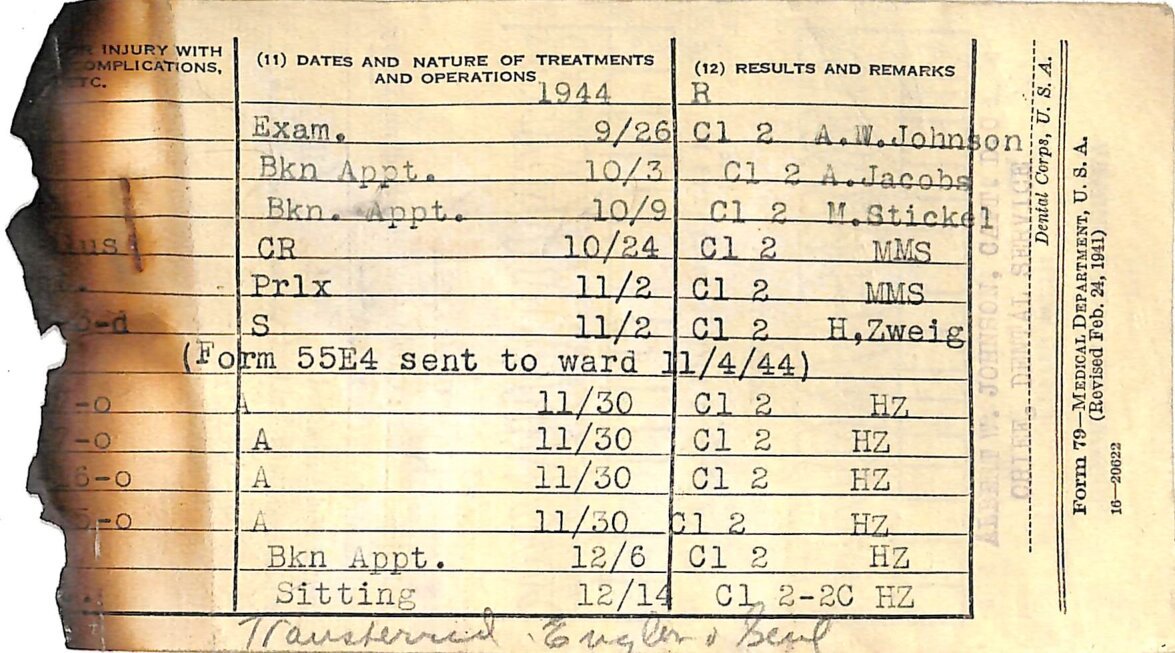 R INJURY WITH
OMPLICATIONS,
TC.
(11) DATES AND NATURE OF TREATMENTS
AND OPERATIONS
(12) RESULTS AND REMARKS
1944 R
Exam. 9/26 Cl 2 A.W.Johnson
Bkn Appt. 10/3 Cl 2 A.Jacobs
Bkn. Appt. 10/9 Cl 2 M.Stickel
lus CR 10/24 Cl 2 MMS
Prlx 11/2 Cl 2 MMS
-d S 11/2 Cl 2 H,Zweig
(Form 55E4 sent to ward 11/4/44)
-o A 11/30 Cl 2 HZ
-o A 11/30 Cl 2 HZ
6-o A 11/30 Cl 2 HZ
-o A 11/30 Cl 2 HZ
Bkn Appt. 12/6 Cl 2 HZ
Sitting 12/14 Cl 2-2C HZ
Transferred
ALBERT W. JOHNSON, CAPT. D C
CHIEF, DENTAL SERVICE
Dental Corps, U. S. A.
Form 79—MEDICAL DEPARTMENT, U. S. A.
(Revised Feb. 24, 1941)
16—20622